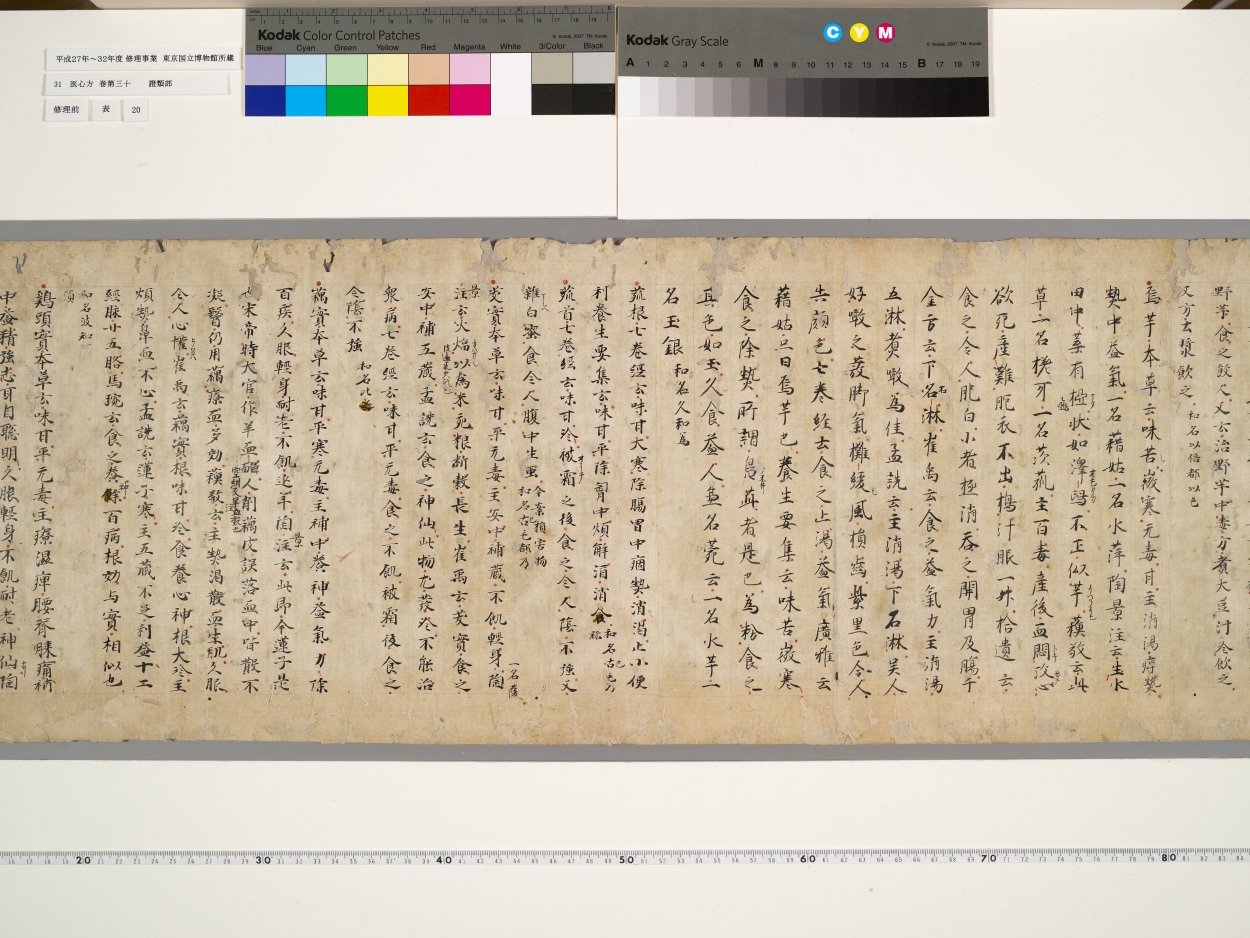 平成27年～32年度 修理事業 東京国立博物館所蔵
31 医心方 巻第三十 證類部
修理前 表 20
Kodak Color Control Patches
© Kodak, 2007 TM: Kodak
Blue Cyan Green Yellow Red Magenta White 3/Color Black
Kodak Gray Scale
C Y M
© Kodak, 2007 TM: Kodak
A 1 2 3 4 5 6 M 8 9 10 11 12 13 14 15 B 17 18 19
野芋食之敘人又云治野芋中毒方煮大豆汁冷飲之
又方云漿飲之 和名以倍都以毛
烏芋本草云味苦微寒无毒月主消渴痺熱
熱中益氣一名藉姑一名水萍陶景注云生水
田中葉有極状如澤舄不正似芋蘓敬云此
草一名槎牙一名茨菰主百毒產後血悶攻心
欲死產難胞衣不出搗汁服一升拾遺云
食之令人肥白小者極消吞之開胃及腸千
金方云下石淋崔禹云食之益氣力主消渴
五淋煮噉為佳孟詵云主消渴下石淋吴人
好噉之發脚氣攤緩風損齒紫黑色令人
失顔色七巻経云食之止渴益氣廣雅云
藉姑亦曰烏芋也養生要集云味苦微寒
食之除熱所謂鳧茈者是也為粉食之
其色如玉久食益人兼名菀云一名水芋一
名王銀 和名久和為
蓏根七巻經云味甘大寒除腸胃中痼熱消渴止小便
利養生要集云味甘平除胷中煩解酒消食
蓏首七巻經云味甘冷被霜之後食之令人陰不強又
雜白蜜食令人腹中生虫
芰實本草云味甘平无毒主安中補蔵不飢輕身陶
注云火熖以為米充粮断穀長生崔禹云芰實食之
安中補五蔵孟詵云食之神仙此物尤發冷不能治
衆病七巻經云味甘平无毒食之不飢被霜後食之
令陰不強
藕實本草云味甘平寒无毒主補中養神益氣力除
百疾久服輕身耐老不飢延年陶注云此即今蓮子是
也宋帝時大官作羊血䘓人削藕皮誤落血中皆散不
凝醫仍用藕療血多効蘓敬云主熱渴散血生肌久服
令人心懽崔禹云藕實根味甘冷食養心神根大冷主
煩熱鼻血不心孟詵云蓮子寒主五蔵不足利益十二
經脉廾五胳馬琬云食之養神餘百病根効与實相似也
和名波知
鷄頭實本草云味甘平无毒主療温痺腰脊膝痛補
中益精強志耳目聡明久服輕身不飢耐老神仙陶
20 30 40 50 60 70 80